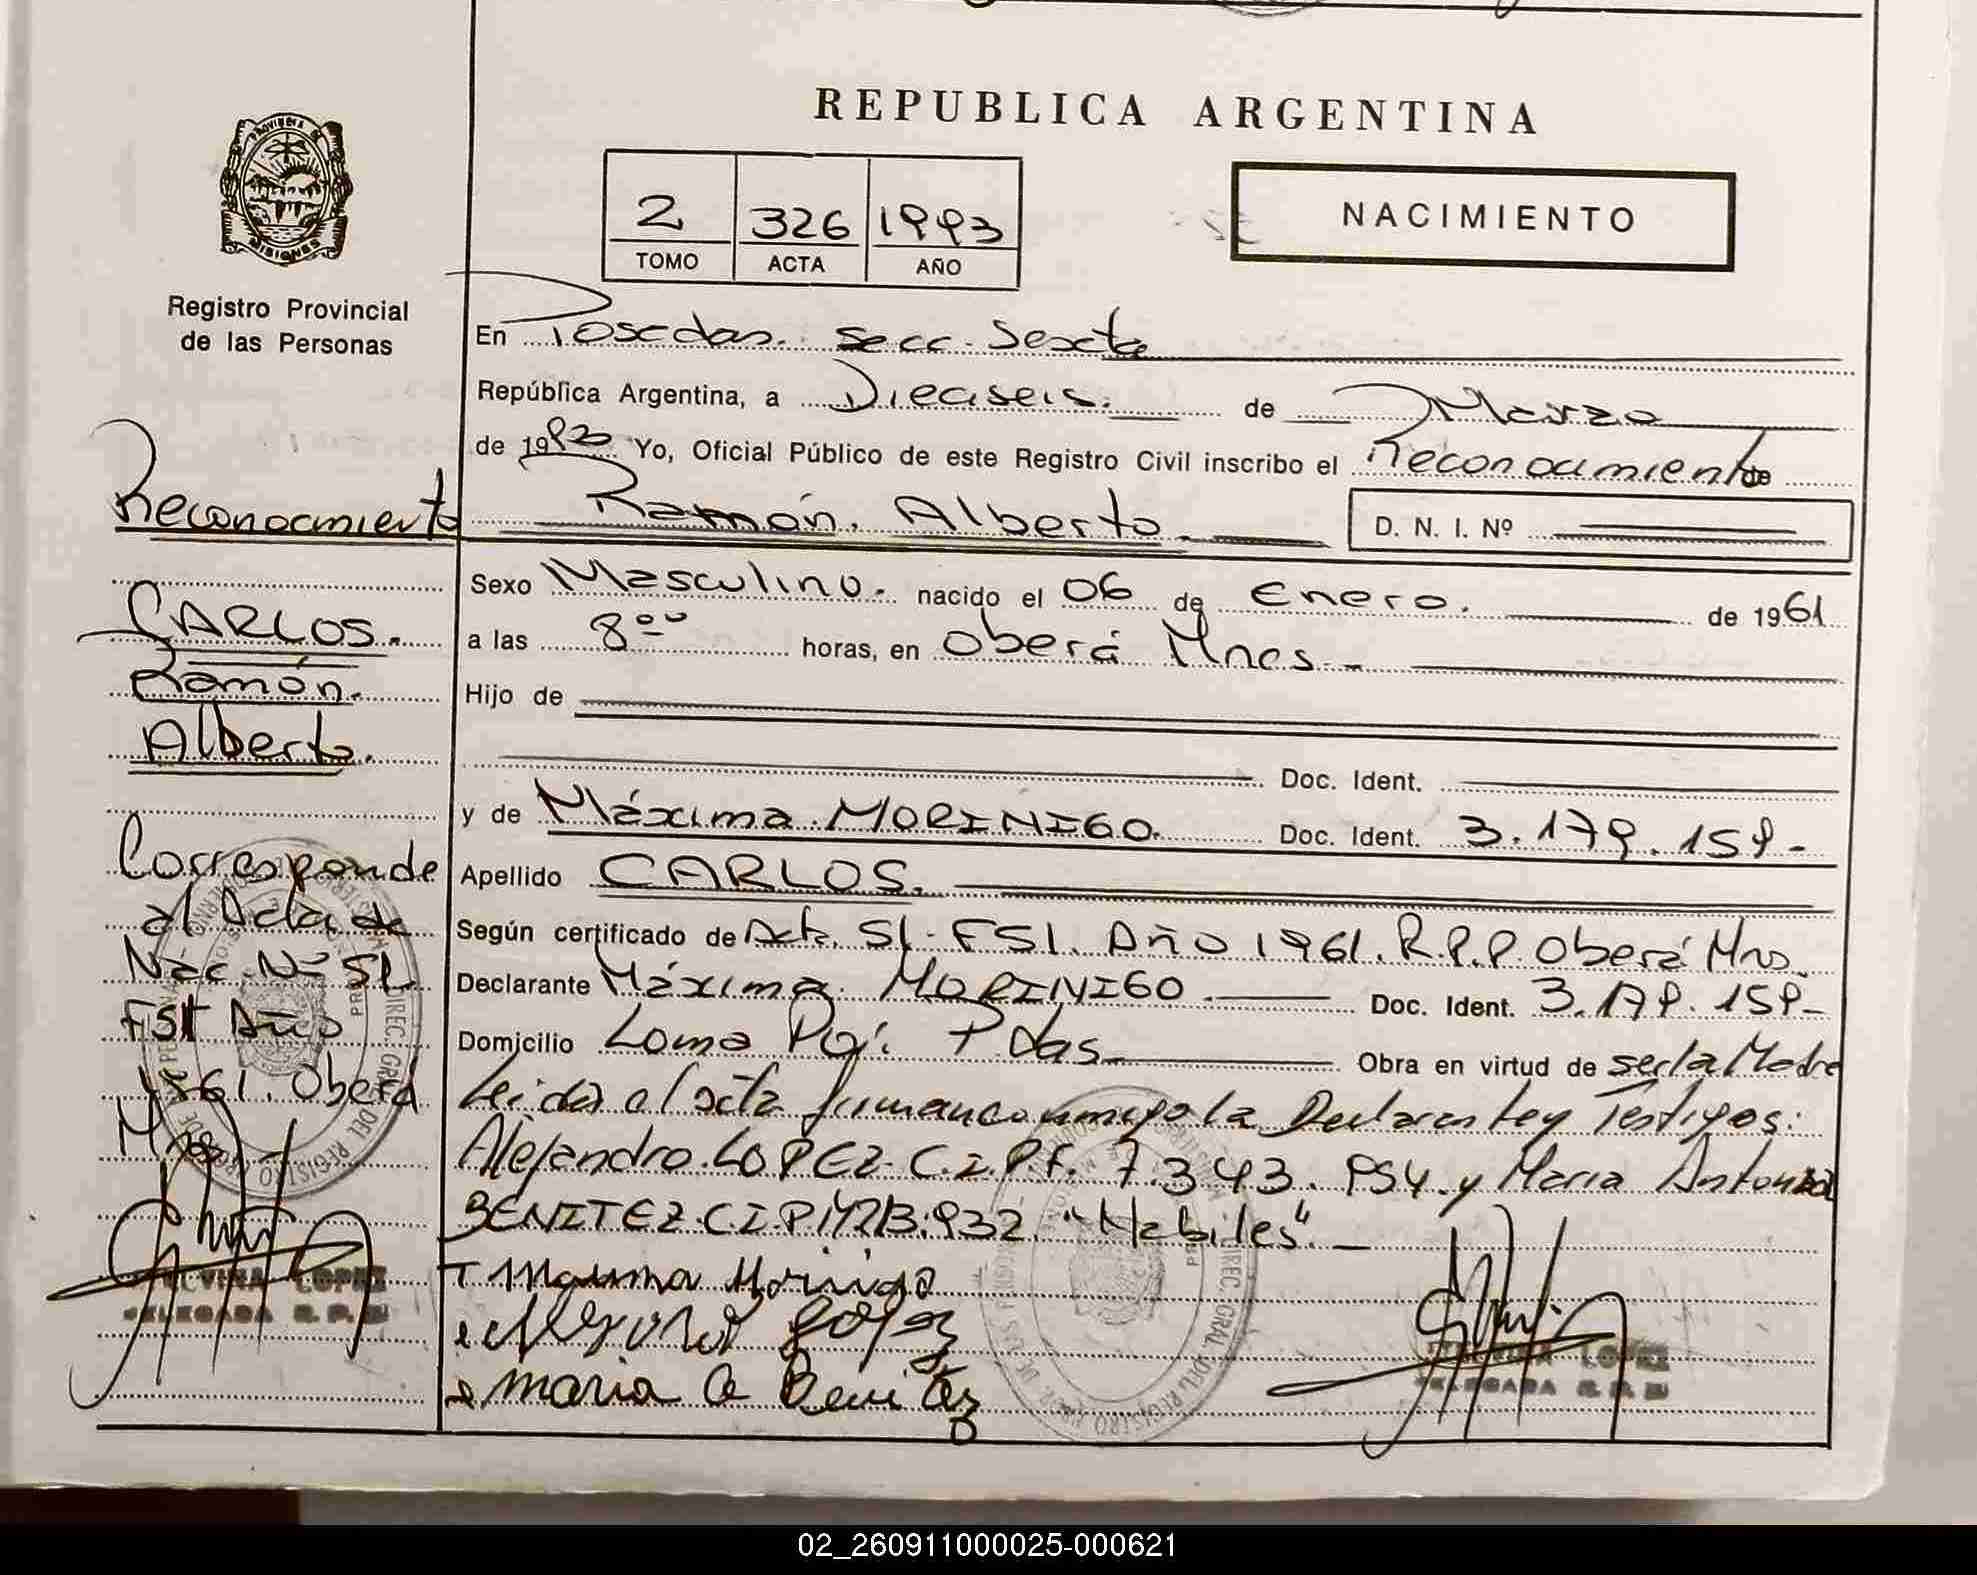 REPUBLICA ARGENTINA
PROVINCIA DE
MISIONES
Registro Provincial
de las Personas
2 326 1993
TOMO ACTA AÑO
NACIMIENTO
En Posadas. Secc. Sexta
República Argentina, a Dieciseis. de Marzo
de 19 Yo, Oficial Público de este Registro Civil inscribo el Reconocimiento de
Ramón. Alberto. D. N. I. Nº
Sexo Masculino. nacido el 06 de Enero. de 1961
a las 8 00 horas, en Oberá Mnes.
Hijo de
Doc. Ident.
y de Máxima MORINIGO. Doc. Ident. 3.179.159.-
Apellido CARLOS.
Según certificado de Acta. 51. F51. Año 1961. R.P.P. Oberá Mns.
Declarante Máxima MORINIGO. Doc. Ident. 3.179.159.-
Domicilio Loma Poi. Pdas. Obra en virtud de ser la Madre
Leida el acta firman conmigo la Declarante y Testigos:
Alejandro. LOPEZ. C.I.P.F. 7.343.954. y Maria Antonia
BENITEZ. C.I.P. "Habiles". -
Maxima Morinigo
Lopez
maria a Benitez
LOPEZ
DELEGADA R. P. P.
Reconocimiento
CARLOS.
Ramón.
Alberto.
Corresponde
al Acta de
Nac. Nº 51
F51 Año
1961. Oberá
Mnes
LOPEZ
DELEGADA R. P. P.
02_260911000025-000621